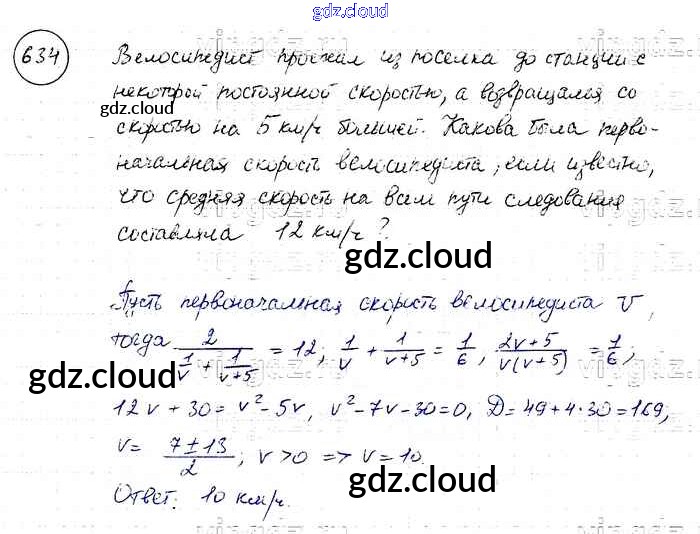 gdz.cloud
634
Велосипедист проехал из поселка до станции с
некоторой постоянной скоростью, а возвращался со
gdz.cloud
скоростью на 5 км/ч большей. Какова была перво-
начальная скорость велосипедиста, если известно,
что средняя скорость на всем пути следования
составляла 12 км/ч?
gdz.cloud
Пусть первоначальная скорость велосипедиста v,
тогда 2/(1/v + 1/(v+5)) = 12; 1/v + 1/(v+5) = 1/6, (2v+5)/(v(v+5)) = 1/6;
gdz.cloud
gdz.cloud
12v + 30 = v² - 5v, v² - 7v - 30 = 0, D = 49 + 4·30 = 169,
v = (7 ± 13)/2; v > 0 => v = 10.
gdz.cloud
Ответ: 10 км/ч.